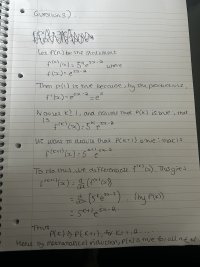 Question 5)
Let P(n) be the statement
f⁽ⁿ⁾(x) = 5ⁿ e^{5x-2} where
f(x) = e^{5x-2}
Then P(1) is true because, by the
Now let k ≥ 1, and assume that P(k) is true, that
is f⁽ᵏ⁾(x) = 5ᵏ e^{5x-2}
We want to deduce that P(k+1) is true; that is
f⁽ᵏ⁺¹⁾(x) = 5^{k+1} e^{5x-2}
To do that we differentiate f⁽ᵏ⁾(x). This gives
f⁽ᵏ⁺¹⁾(x) = d/dx (f⁽ᵏ⁾(x))
= d/dx (5ᵏ e^{5x-2}) (by P(k))
= 5^{k+1} e^{5x-2}
Thus
P(k) ⇒ P(k+1), for k=1,2,...
Hence by mathematical induction, P(n) is true for all n